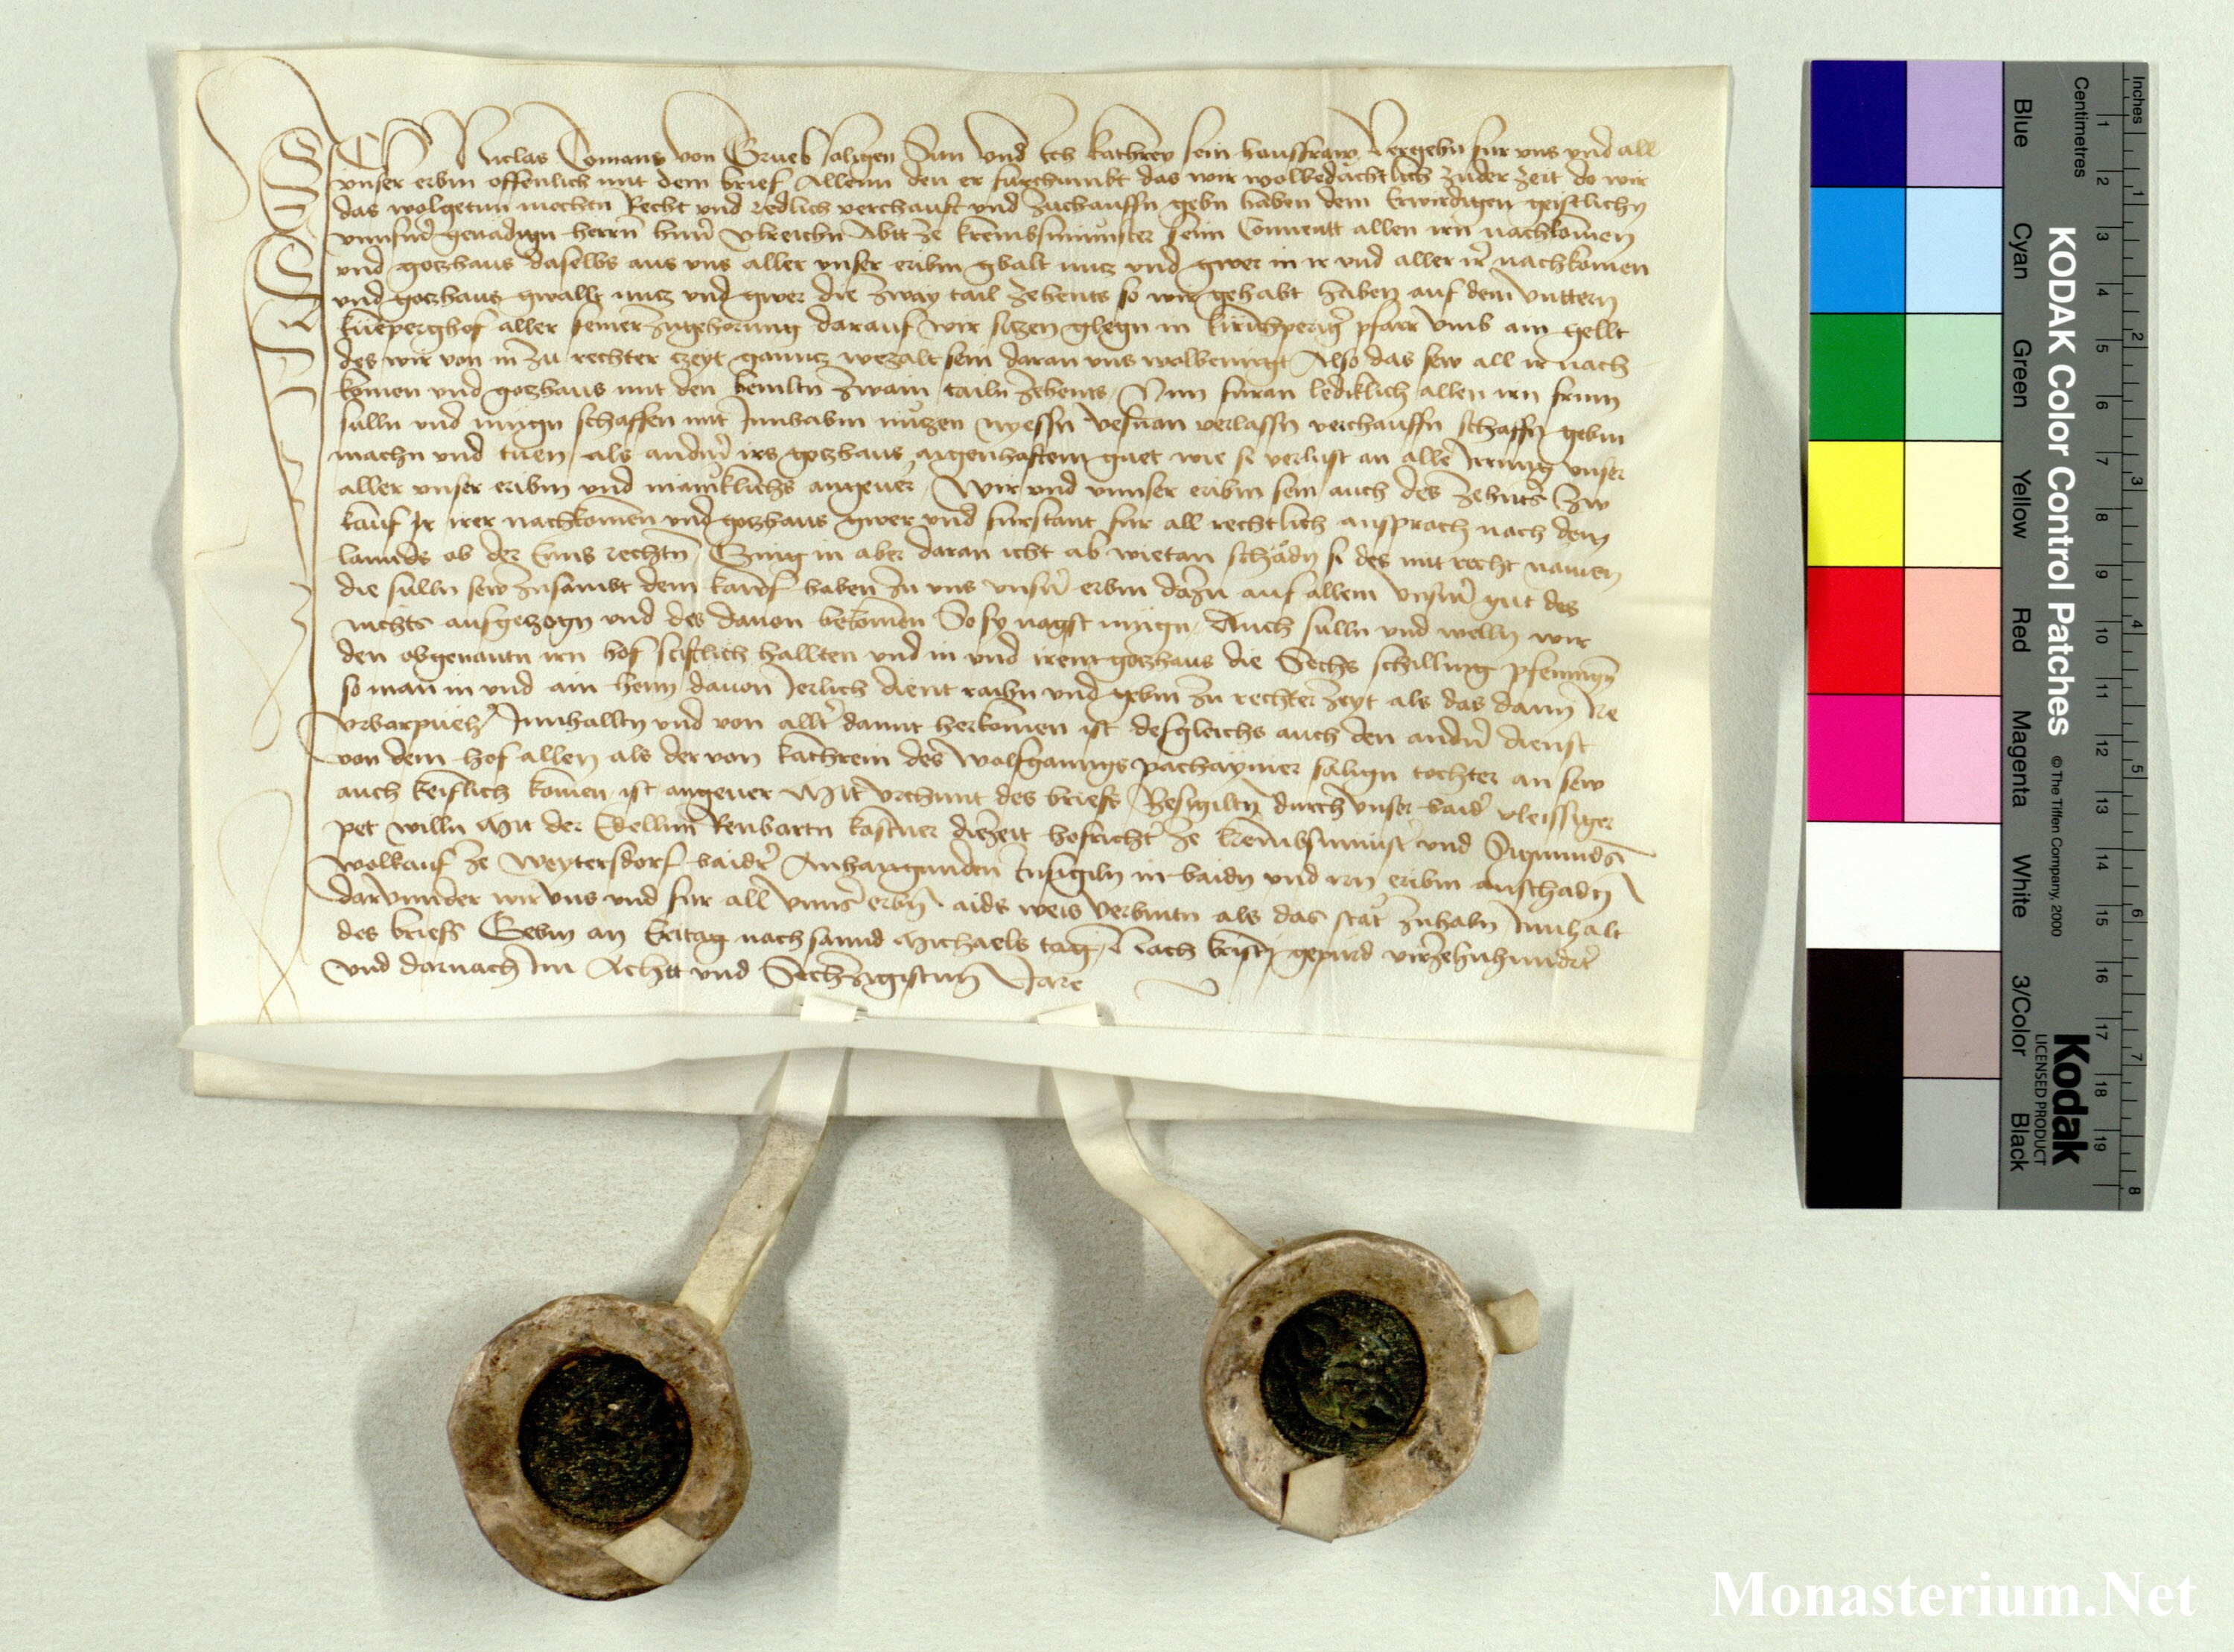 ICH Niclas Tomans von Grueb saligen Sun Und Ich Kathrey sein hausfraw Vergehn fur uns und all
unser erbm offenlich mit dem brief Allenn den er furchumbt das wir wolbedachtlich zuder zeit do wir
das wolgetun mochtn Recht und redlich verchauft und zuchauffn gebn haben dem Erwirdigen geistlichn
unnserm genadign herrn hern Ulreichn Abtt ze krembsmunster seim Conventt allen irn nachkomen
und gotzhaus daselbs aus uns aller unser eribm gwalt nutz und gwer in ir und aller ir nachkomen
und gotzhaus gwallt nutz und gwer die zway tail zehents so wir gehabt haben auf dem Unttern
kueperghof aller seiner zugehorung darauf wir sitzen glegn in kirichperiger pfarr Umb ain gellt
des wir von in zu rechter tzeyt ganntz wezalt sein daran uns wolbenügt Also das sew all ir nach
komen und gotzhaus mit den bemltn zwain tailn zehents Nun furan lediklich allen irn frum
sulln und mügn schaffen mit Innhabm nützen nyessn Uesüan verlassn verchauffn schaffn gebm
machn und tuen als anderm irs gotzhaus aigenhaftem guet wie si verlust an alle Irrung Unser
aller unser eribm und mäniklichs angeuer Wir und unnser eribm sein auch des zehnts zw
kauf Ir irer nachkomen und gotzhaus gwer und furstant fur all rechtlich ansprach nach dem
lannds ob der Enns rechtn Gieng in aber daran icht ab wietan schadn si des mit recht namen
die sulln sew zusambt dem kawf haben zu uns unsern erbm dazu auf allem unserm gut des
nichts ausgetzogn und des dauon bekomen So sy nagst mügn Auch sulln und welln wir
den obgenantn irn hof stiftlich hallten und in und irem gotzhaus die Sechs schilling pfeningn
so man in und ain henn dauon Jerlich dient raihn und gebm zu rechter zeyt als das dann Ire
Urbarpüeher Innhalltn und von allter damit herkomen ist desgleichs auch den andern dienst
von dem hof allen als der von kathrein des Wolfganngs pachaymer sälign tochter an sew
auch keuflich komen ist angeuer Mit Urchunt des briefs Besigiltn durch Unser baider vleissiger
pet willn Mit der Edellnn Renbartn kastner diezeit hofrichter ze krembsmünster und Sigmunds
Wolkauf ze Weytersdorf baider Anhangunden Insigiln in baidn und irn eribm anschadn
darunnder wir Uns und fur all Unnser erbn aids weis Verbintn als das stat zuhabn Innhalt
des briefs Gebm an Eritag nach sannd Michaels tag Nach kristi gepurd vierzehnhundert
und darnach Im Achtt und Sechzigistnn Jare
Inches
Centimetres
1 2 3 4 5 6 7 8
1 2 3 4 5 6 7 8 9 10 11 12 13 14 15 16 17 18 19
Blue Cyan Green Yellow Red Magenta White 3/Color Black
KODAK Color Control Patches © The Tiffen Company, 2000
Kodak
LICENSED PRODUCT
Monasterium.Net